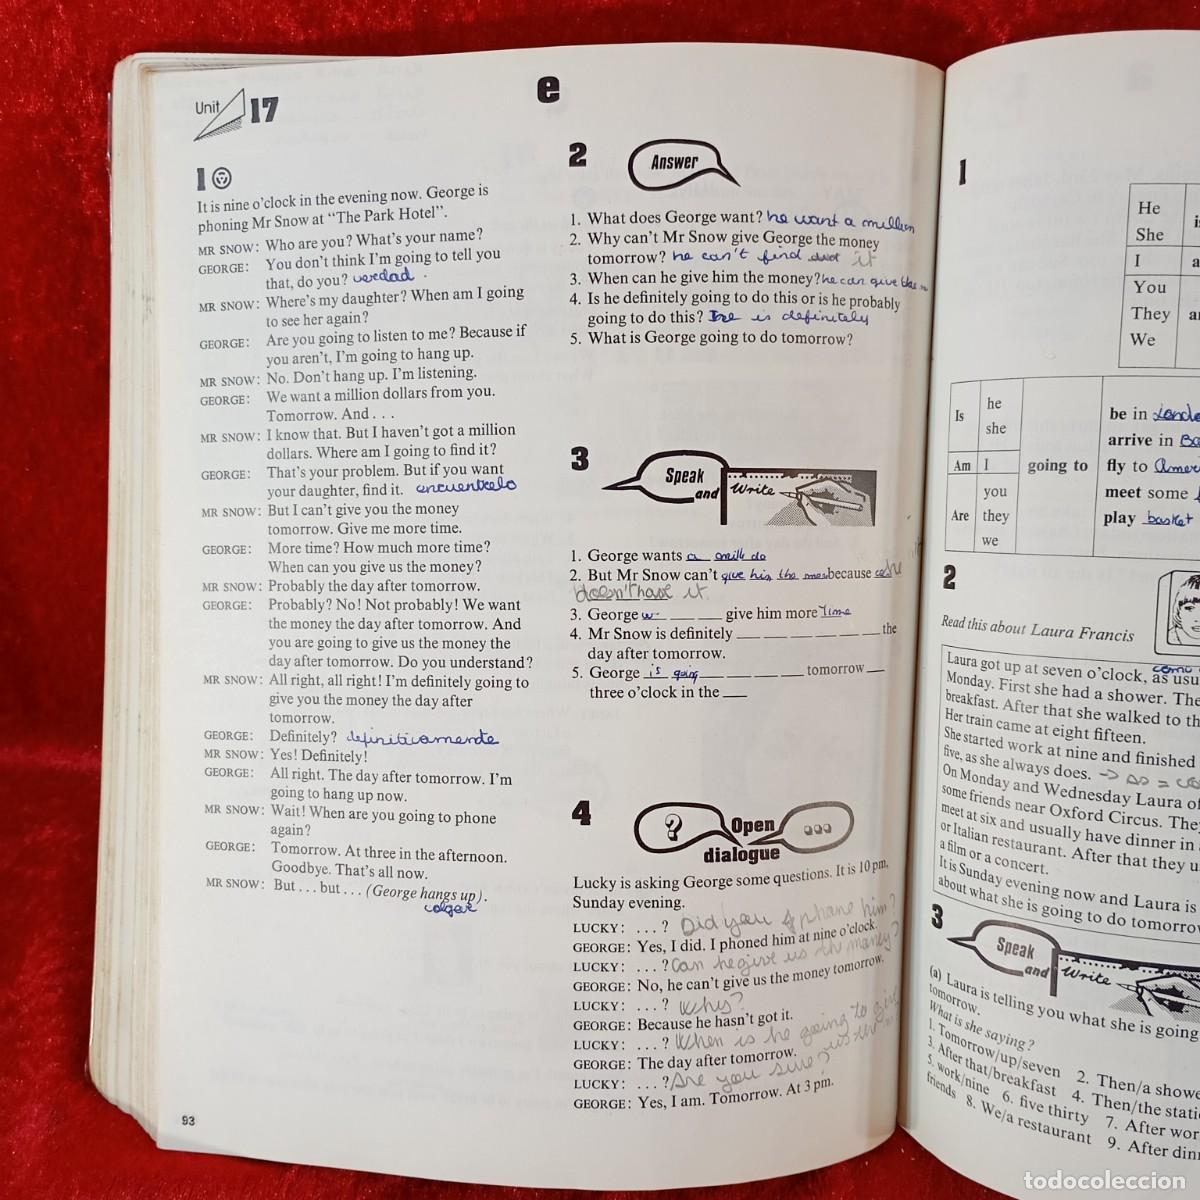 Unit 17
e
1
It is nine o'clock in the evening now. George is
phoning Mr Snow at "The Park Hotel".
MR SNOW: Who are you? What's your name?
GEORGE: You don't think I'm going to tell you
that, do you? verdad.
MR SNOW: Where's my daughter? When am I going
to see her again?
GEORGE: Are you going to listen to me? Because if
you aren't, I'm going to hang up.
MR SNOW: No. Don't hang up. I'm listening.
GEORGE: We want a million dollars from you.
Tomorrow. And . . .
MR SNOW: I know that. But I haven't got a million
dollars. Where am I going to find it?
GEORGE: That's your problem. But if you want
your daughter, find it. encuentrelo
MR SNOW: But I can't give you the money
tomorrow. Give me more time.
GEORGE: More time? How much more time?
When can you give us the money?
MR SNOW: Probably the day after tomorrow.
GEORGE: Probably? No! Not probably! We want
the money the day after tomorrow. And
you are going to give us the money the
day after tomorrow. Do you understand?
MR SNOW: All right, all right! I'm definitely going to
give you the money the day after
tomorrow.
GEORGE: Definitely? definiticamente
MR SNOW: Yes! Definitely!
GEORGE: All right. The day after tomorrow. I'm
going to hang up now.
MR SNOW: Wait! When are you going to phone
again?
GEORGE: Tomorrow. At three in the afternoon.
Goodbye. That's all now.
MR SNOW: But . . . but . . . (George hangs up).
colgar
93
2 Answer
1. What does George want? he want a million
2. Why can't Mr Snow give George the money
tomorrow? he can't find it
3. When can he give him the money? he can give the
4. Is he definitely going to do this or is he probably
going to do this? he is definitely
5. What is George going to do tomorrow?
3 Speak
and Write
1. George wants a mill do
2. But Mr Snow can't give him the mo because he
doesn't have it.
3. George w_ __ __ give him more time
4. Mr Snow is definitely __ __ __ __ __ __ the
day after tomorrow.
5. George is going __ __ __ __ tomorrow __
three o'clock in the __
4 ? Open ...
dialogue
Lucky is asking George some questions. It is 10 pm,
Sunday evening.
LUCKY: . . . ? Did you phone him?
GEORGE: Yes, I did. I phoned him at nine o'clock.
LUCKY: . . . ? Can he give us the money?
GEORGE: No, he can't give us the money tomorrow.
LUCKY: . . . ? Why?
GEORGE: Because he hasn't got it.
LUCKY: . . . ? When is he going to give
us the m
GEORGE: The day after tomorrow.
LUCKY: . . . ? Are you sure?
GEORGE: Yes, I am. Tomorrow. At 3 pm.
1
He
She
I a
You
They
We
Is he
she
Am I going to
Are you
they
we
be in
arrive in
fly to
meet some
play basket
2
Read this about Laura Francis
como
Laura got up at seven o'clock, as usu
Monday. First she had a shower. The
breakfast. After that she walked to th
Her train came at eight fifteen.
She started work at nine and finished
five, as she always does.
On Monday and Wednesday Laura of
some friends near Oxford Circus. They
meet at six and usually have dinner in
or Italian restaurant. After that they u
a film or a concert.
It is Sunday evening now and Laura is
about what she is going to do tomorrow
3 Speak
and Write
(a) Laura is telling you what she is going
tomorrow.
What is she saying?
1. Tomorrow/up/seven 2. Then/a showe
3. After that/breakfast 4. Then/the stati
5. work/nine 6. five thirty 7. After wor
friends 8. We/a restaurant 9. After dinn
todocoleccion